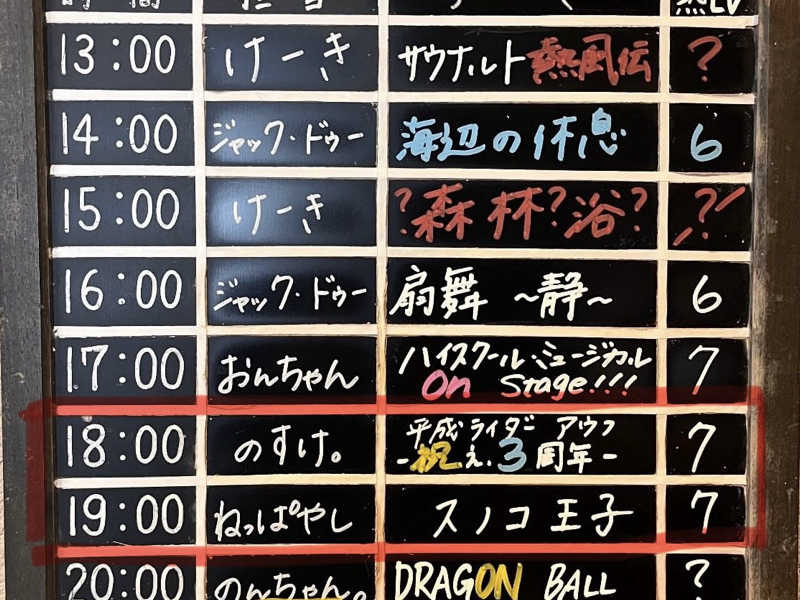 13:00 けーき サウナルト熱風伝 ?
14:00 ジャック・ドゥー 海辺の休息 6
15:00 けーき ?森林?浴? ?
16:00 ジャック・ドゥー 扇舞 〜静〜 6
17:00 おんちゃん ハイスクール・ミュージカル
On Stage!!! 7
18:00 のすけ。 平成ライダー アウフ
-祝え.3周年- 7
19:00 ねっぱやし スノコ王子 7
20:00 のんちゃん。 DRAGON BALL ?